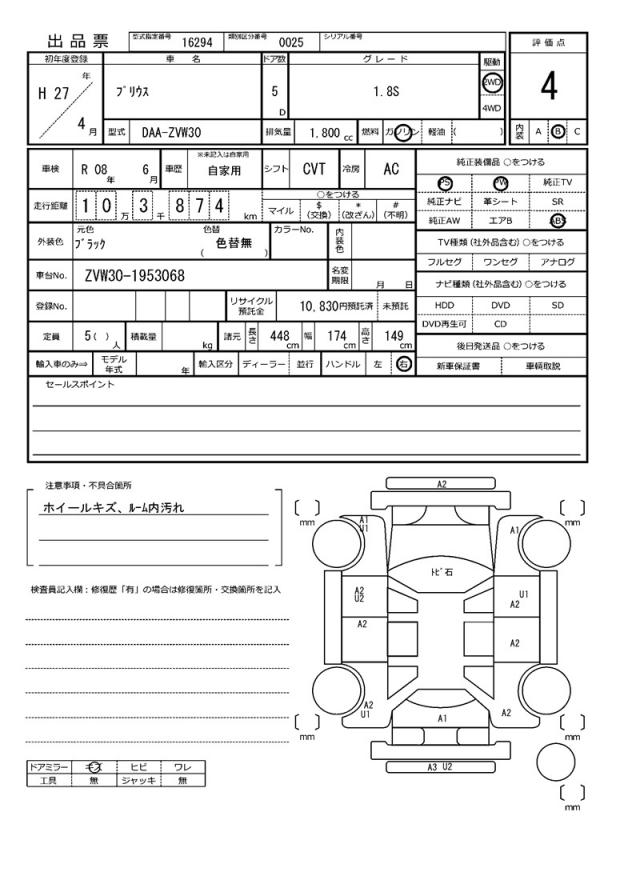 出品票 型式指定番号 16294 類別区分番号 0025 シリアル番号
評価点
4
内装 A B C
初年度登録 車名 ドア数 グレード 駆動
H 27 年 4 月 プリウス 5 D 1.8S 2WD 4WD
型式 DAA-ZVW30 排気量 1,800 cc 燃料 ガソリン 軽油 ( )
車検 R 08 年 6 月 車歴 ※未記入は自家用 自家用 シフト CVT 冷房 AC
走行距離 1 0 万 3 千 8 7 4 km
○をつける
マイル $ (交換) * (改ざん) # (不明)
外装色 元色 ブラック 色替 色替無 ( ) カラーNo. 内装色
車台No. ZVW30-1953068 名変期限 月 日
登録No. リサイクル預託金 10,830円預託済 未預託
定員 5 ( ) 人 積載量 kg 諸元 長さ 448 cm 幅 174 cm 高さ 149 cm
輸入車のみ⇒ モデル年式 年 輸入区分 ディーラー 並行 ハンドル 左 右
純正装備品 ○をつける
PS PW 純正TV
純正ナビ 革シート SR
純正AW エアB ABS
TV種類 (社外品含む) ○をつける
フルセグ ワンセグ アナログ
ナビ種類 (社外品含む) ○をつける
HDD DVD SD
DVD再生可 CD
後日発送品 ○をつける
新車保証書 車輌取説
セールスポイント
注意事項・不具合箇所
ホイールキズ、ルーム内汚れ
検査員記入欄：修復歴「有」の場合は修復箇所・交換箇所を記入
ドアミラー キズ ヒビ ワレ
工具 無 ジャッキ 無
A2
mm
mm
A1
U1
A1
トビ石
A2
U2
U1
A2
A2
A2
A2
U1
A1
A2
mm
mm
A3 U2
mm